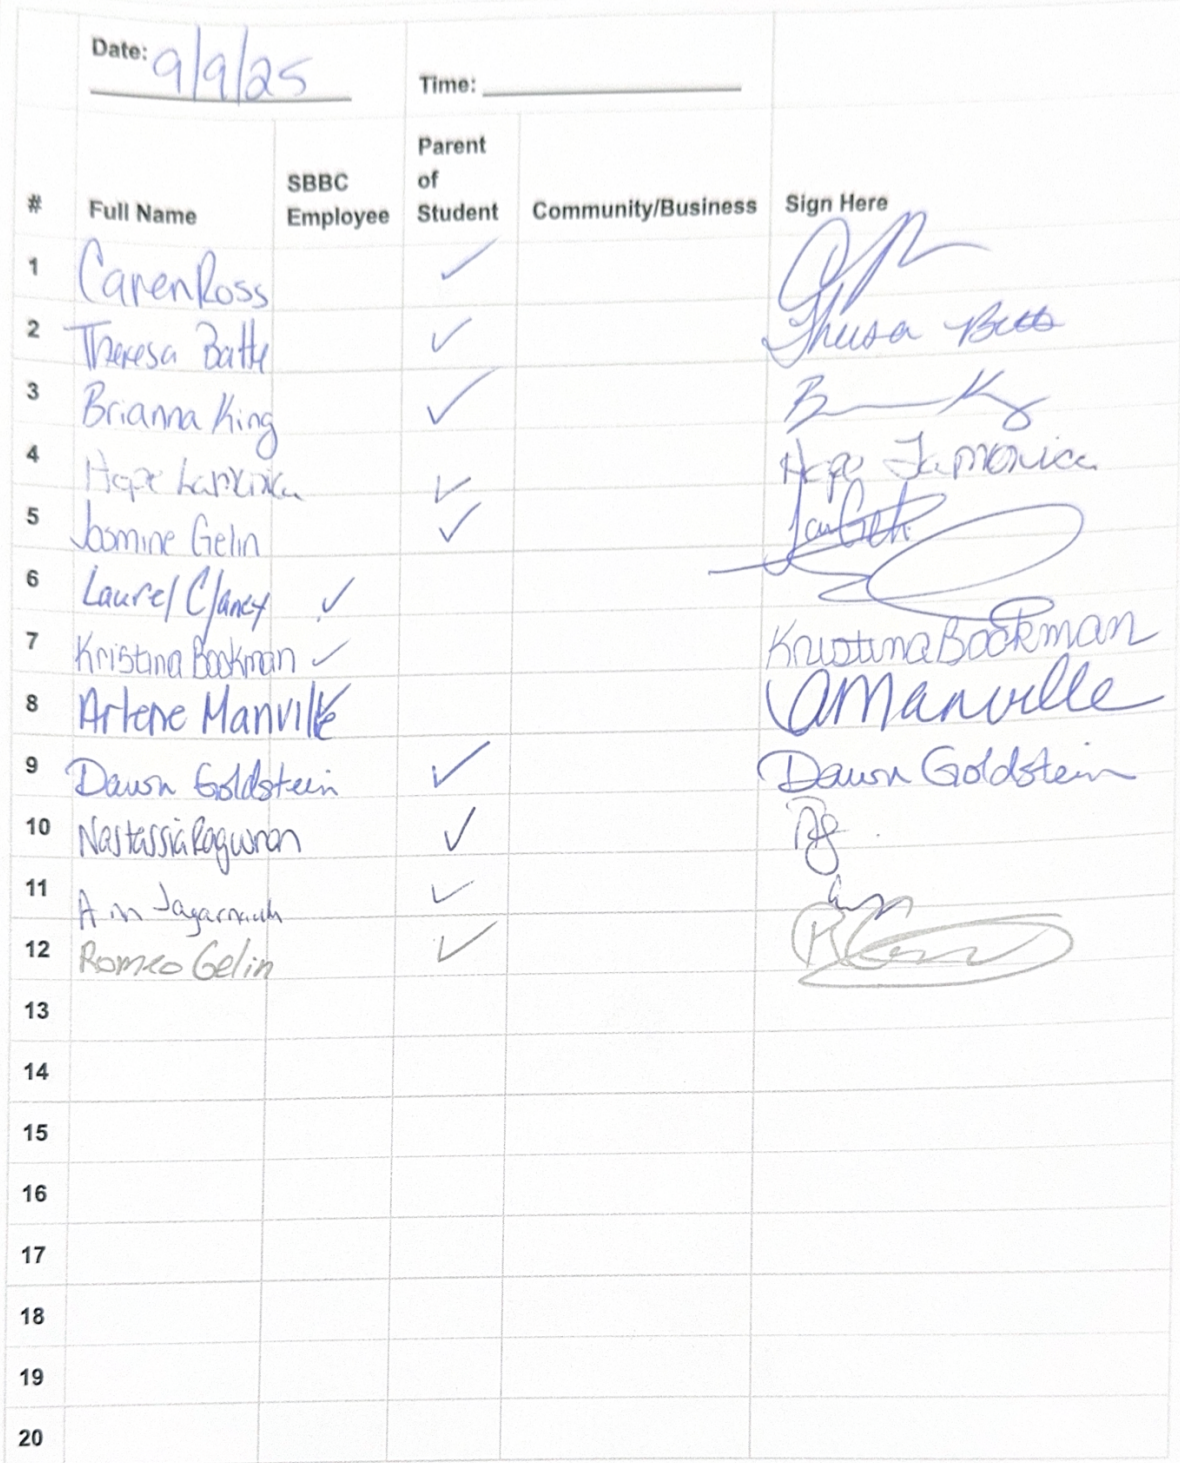 Date: 9/9/25 Time:
# Full Name SBBC Employee Parent of Student Community/Business Sign Here
1 Caren Ross ✓
2 Theresa Batte ✓ Theresa
3 Brianna King ✓
4 Hope ✓ Hope Lamonica
5 Jasmine Gelin ✓
6 Laurel Clancy ✓
7 Kristina Bookman ✓ Kristina Bookman
8 Arlene Manville ✓ AManville
9 Dawn Goldstein ✓ Dawn Goldstein
10 Nastassia Ragwnan ✓
11 Jagarnauth ✓
12 Romeo Gelin ✓
13
14
15
16
17
18
19
20